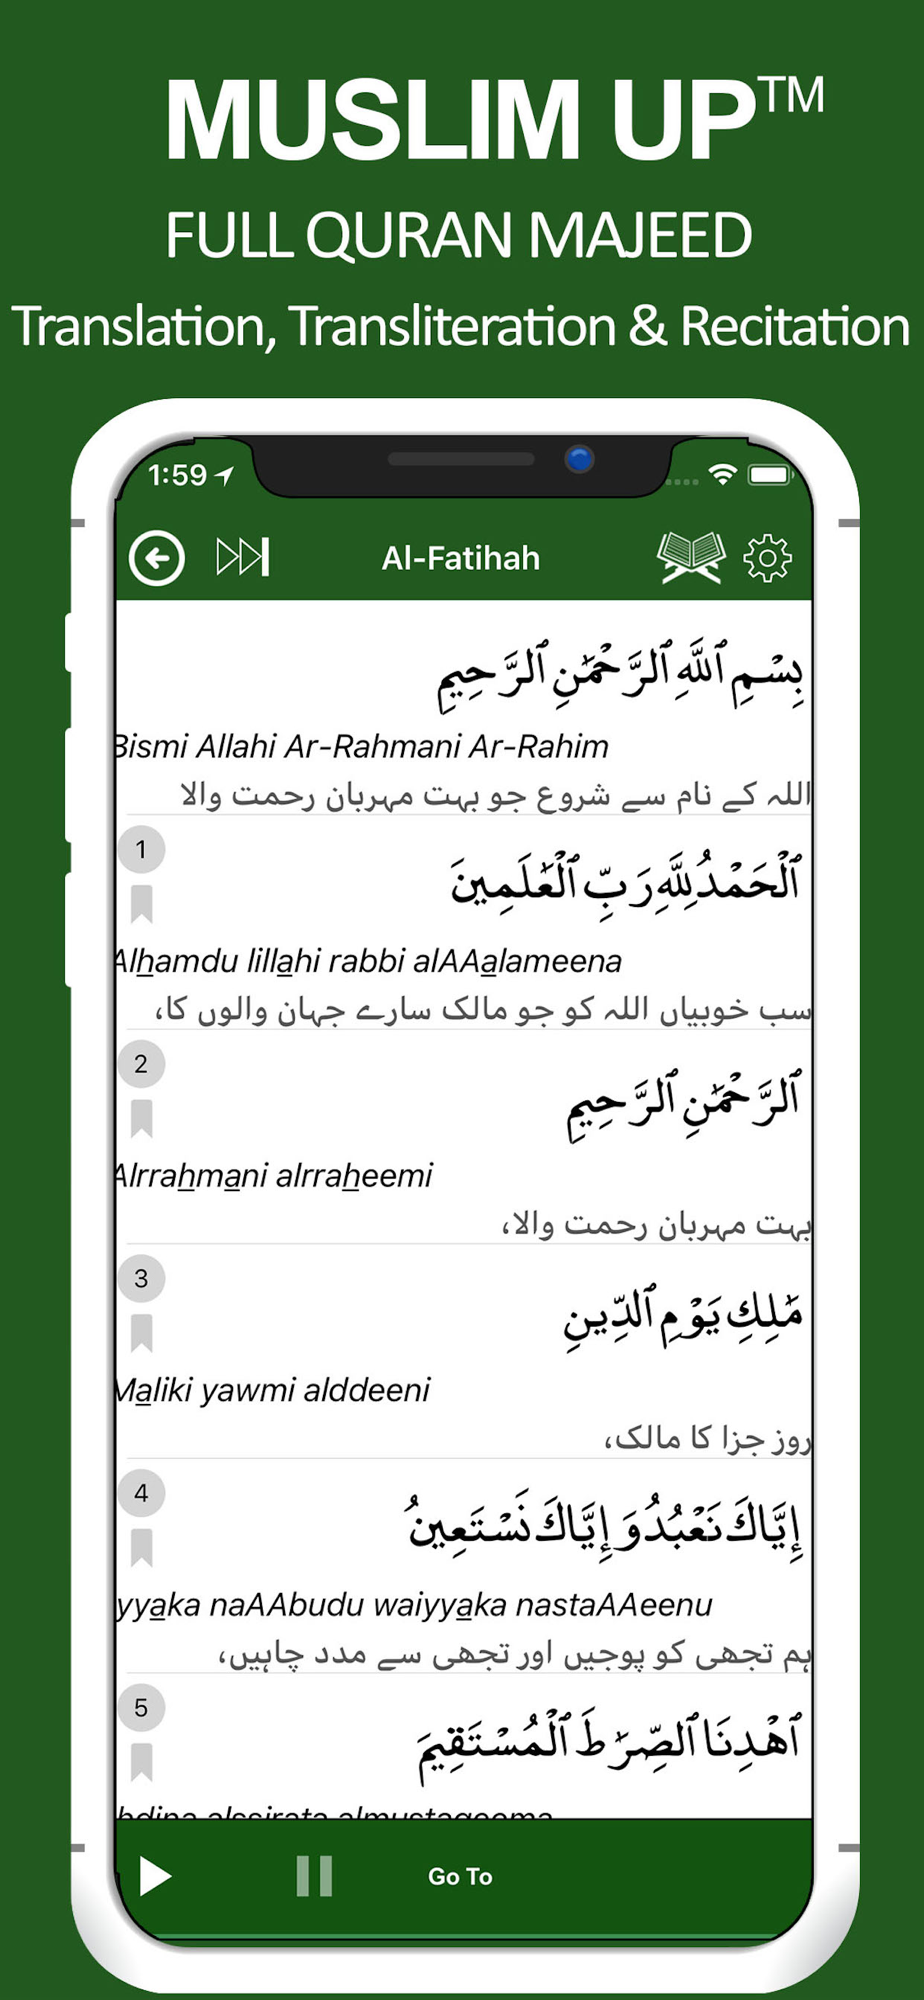 MUSLIM UP™
FULL QURAN MAJEED
Translation, Transliteration & Recitation
1:59
Al-Fatihah
بِسْمِ ٱللَّهِ ٱلرَّحْمَٰنِ ٱلرَّحِيمِ
Bismi Allahi Ar-Rahmani Ar-Rahim
اللہ کے نام سے شروع جو بہت مہربان رحمت والا
1
ٱلْحَمْدُ لِلَّهِ رَبِّ ٱلْعَٰلَمِينَ
Alhamdu lillahi rabbi alAAalameena
سب خوبیاں اللہ کو جو مالک سارے جہان والوں کا،
2
ٱلرَّحْمَٰنِ ٱلرَّحِيمِ
Alrrahmani alrraheemi
بہت مہربان رحمت والا،
3
مَٰلِكِ يَوْمِ ٱلدِّينِ
Maliki yawmi alddeeni
روز جزا کا مالک،
4
إِيَّاكَ نَعْبُدُ وَإِيَّاكَ نَسْتَعِينُ
yyaka naAAbudu waiyyaka nastaAAeenu
ہم تجھی کو پوجیں اور تجھی سے مدد چاہیں،
5
ٱهْدِنَا ٱلصِّرَٰطَ ٱلْمُسْتَقِيمَ
Go To